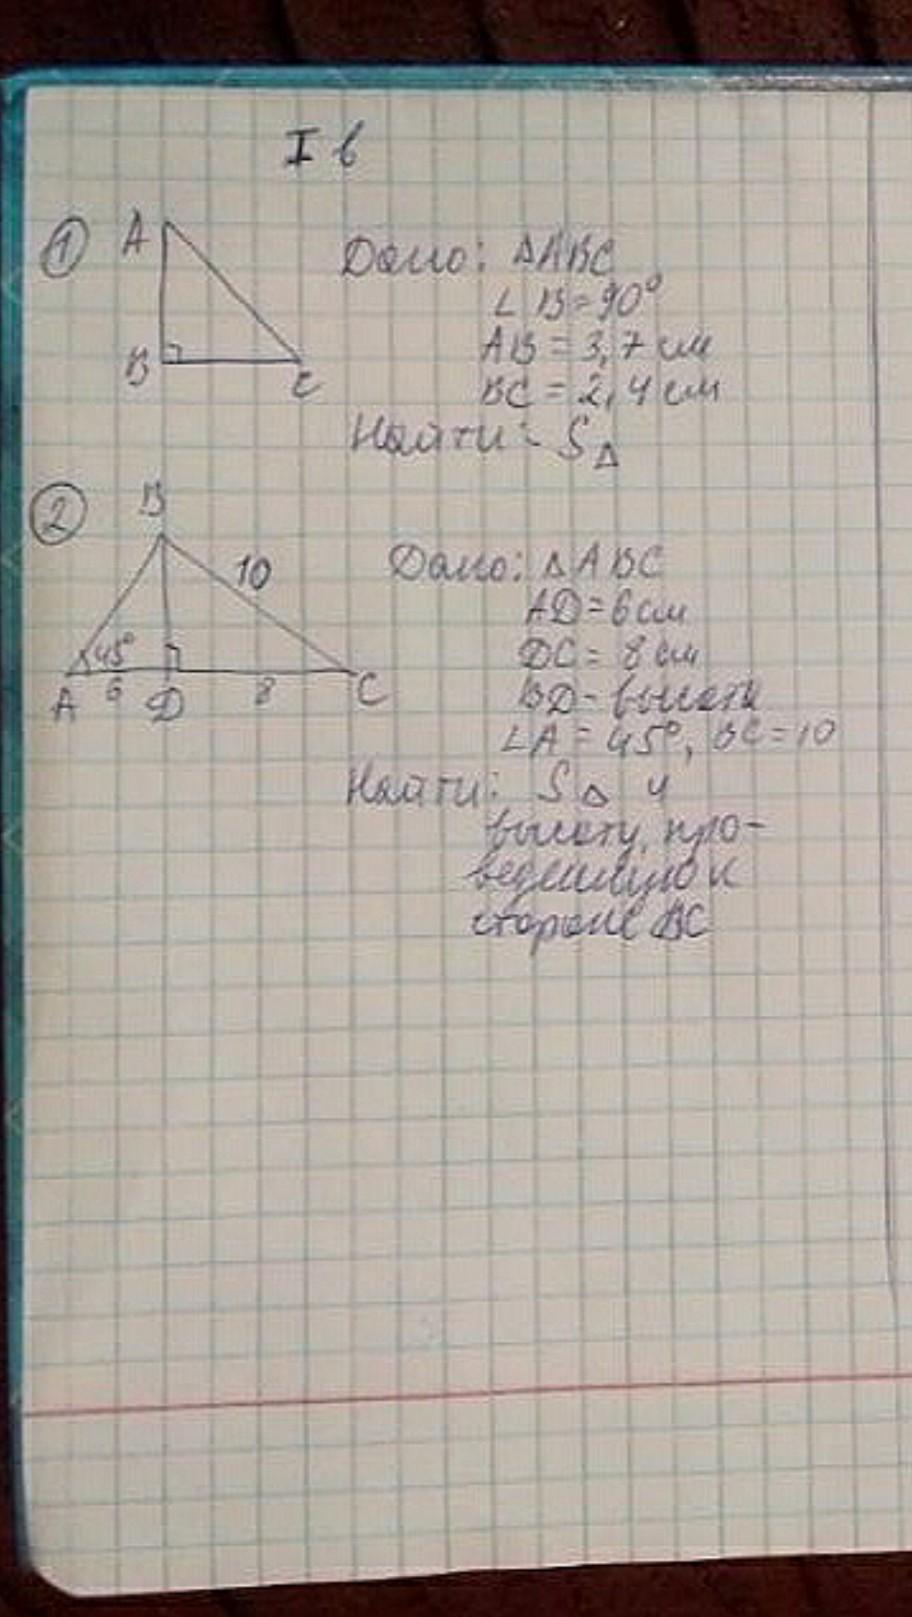 I в
① A
B
C
Дано: ΔABC
∠B=90°
AB = 3,7 см
BC = 2,4 см
Найти: S△
② B
10
45°
A 6 D 8 C
Дано: ΔABC
AD=6см
DC= 8 см
BD- высота
∠A = 45°, BC=10
Найти: S△ и
высоту, про-
веденную к
стороне BC